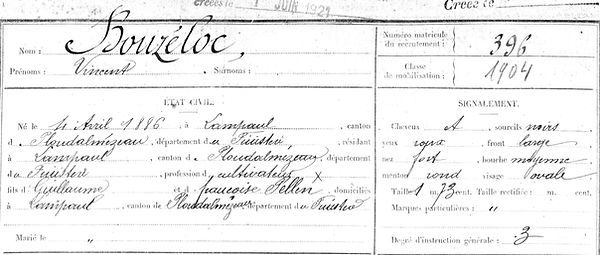 Créées le 1 JUIN 1921
Créées le
Nom : Bouzéloc,
Prénoms : Vincent Surnoms :
Numéro matricule du recrutement : 396
Classe de mobilisation : 1904
ÉTAT CIVIL.
Né le 4 Avril 1886, à Lampaul, canton
d Ploudalmézeau, département du Finistère, résidant
à Lampaul, canton de Ploudalmézeau, département
du Finistère, profession d cultivateur X
fils d Guillaume et d françoise Pellen, domiciliés
à Lampaul, canton de Ploudalmézeau, département du Finistère
Marié le "
SIGNALEMENT.
Cheveux et sourcils noirs
yeux roux, front large
nez fort, bouche moyenne
menton rond visage ovale
Taille : 1 m. 73 cent. Taille rectifiée : m. cent.
Marques particulières : "
Degré d'instruction générale : 3